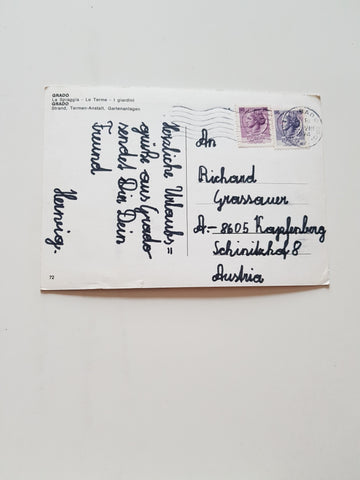 GRADO
La Spiaggia - Le Terme - I giardini
GRADO
Strand, Termen-Anstalt, Gartenanlagen
Herzliche Urlaubs=
grüße aus Grado
sendet Dir Dein
Freund
Herwig.
An
Richard
Grassauer
A-8605 Kapfenberg
Schinitzhof 8
Austria
72